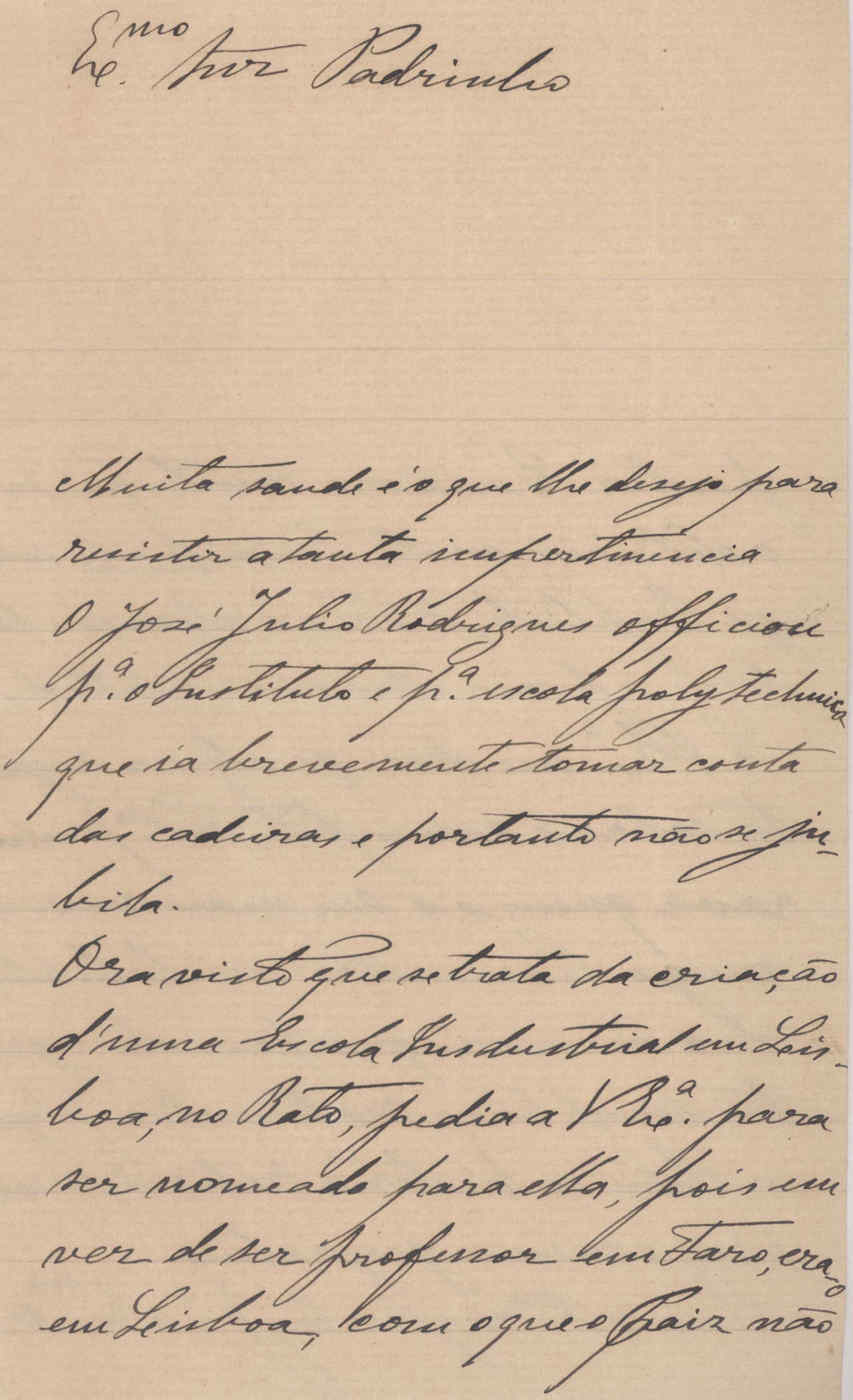 Ex.mo Snr Padrinho
Muita saude é o que lhe desejo para
resistir a tanta impertinencia
O José Julio Rodrigues officiou
p.ª o Instituto e p.ª escola polytechnica
que ia brevemente tomar conta
das cadeiras e portanto não se ju-
bila.
Ora visto que se trata da criação
d'uma Escola Insdustrial em Lis-
boa, no Rato, pedia a V Ex.ª para
ser nomeado para ella, pois em
vez de ser professor em Faro, era-o
em Lisboa, com o que o Paiz não